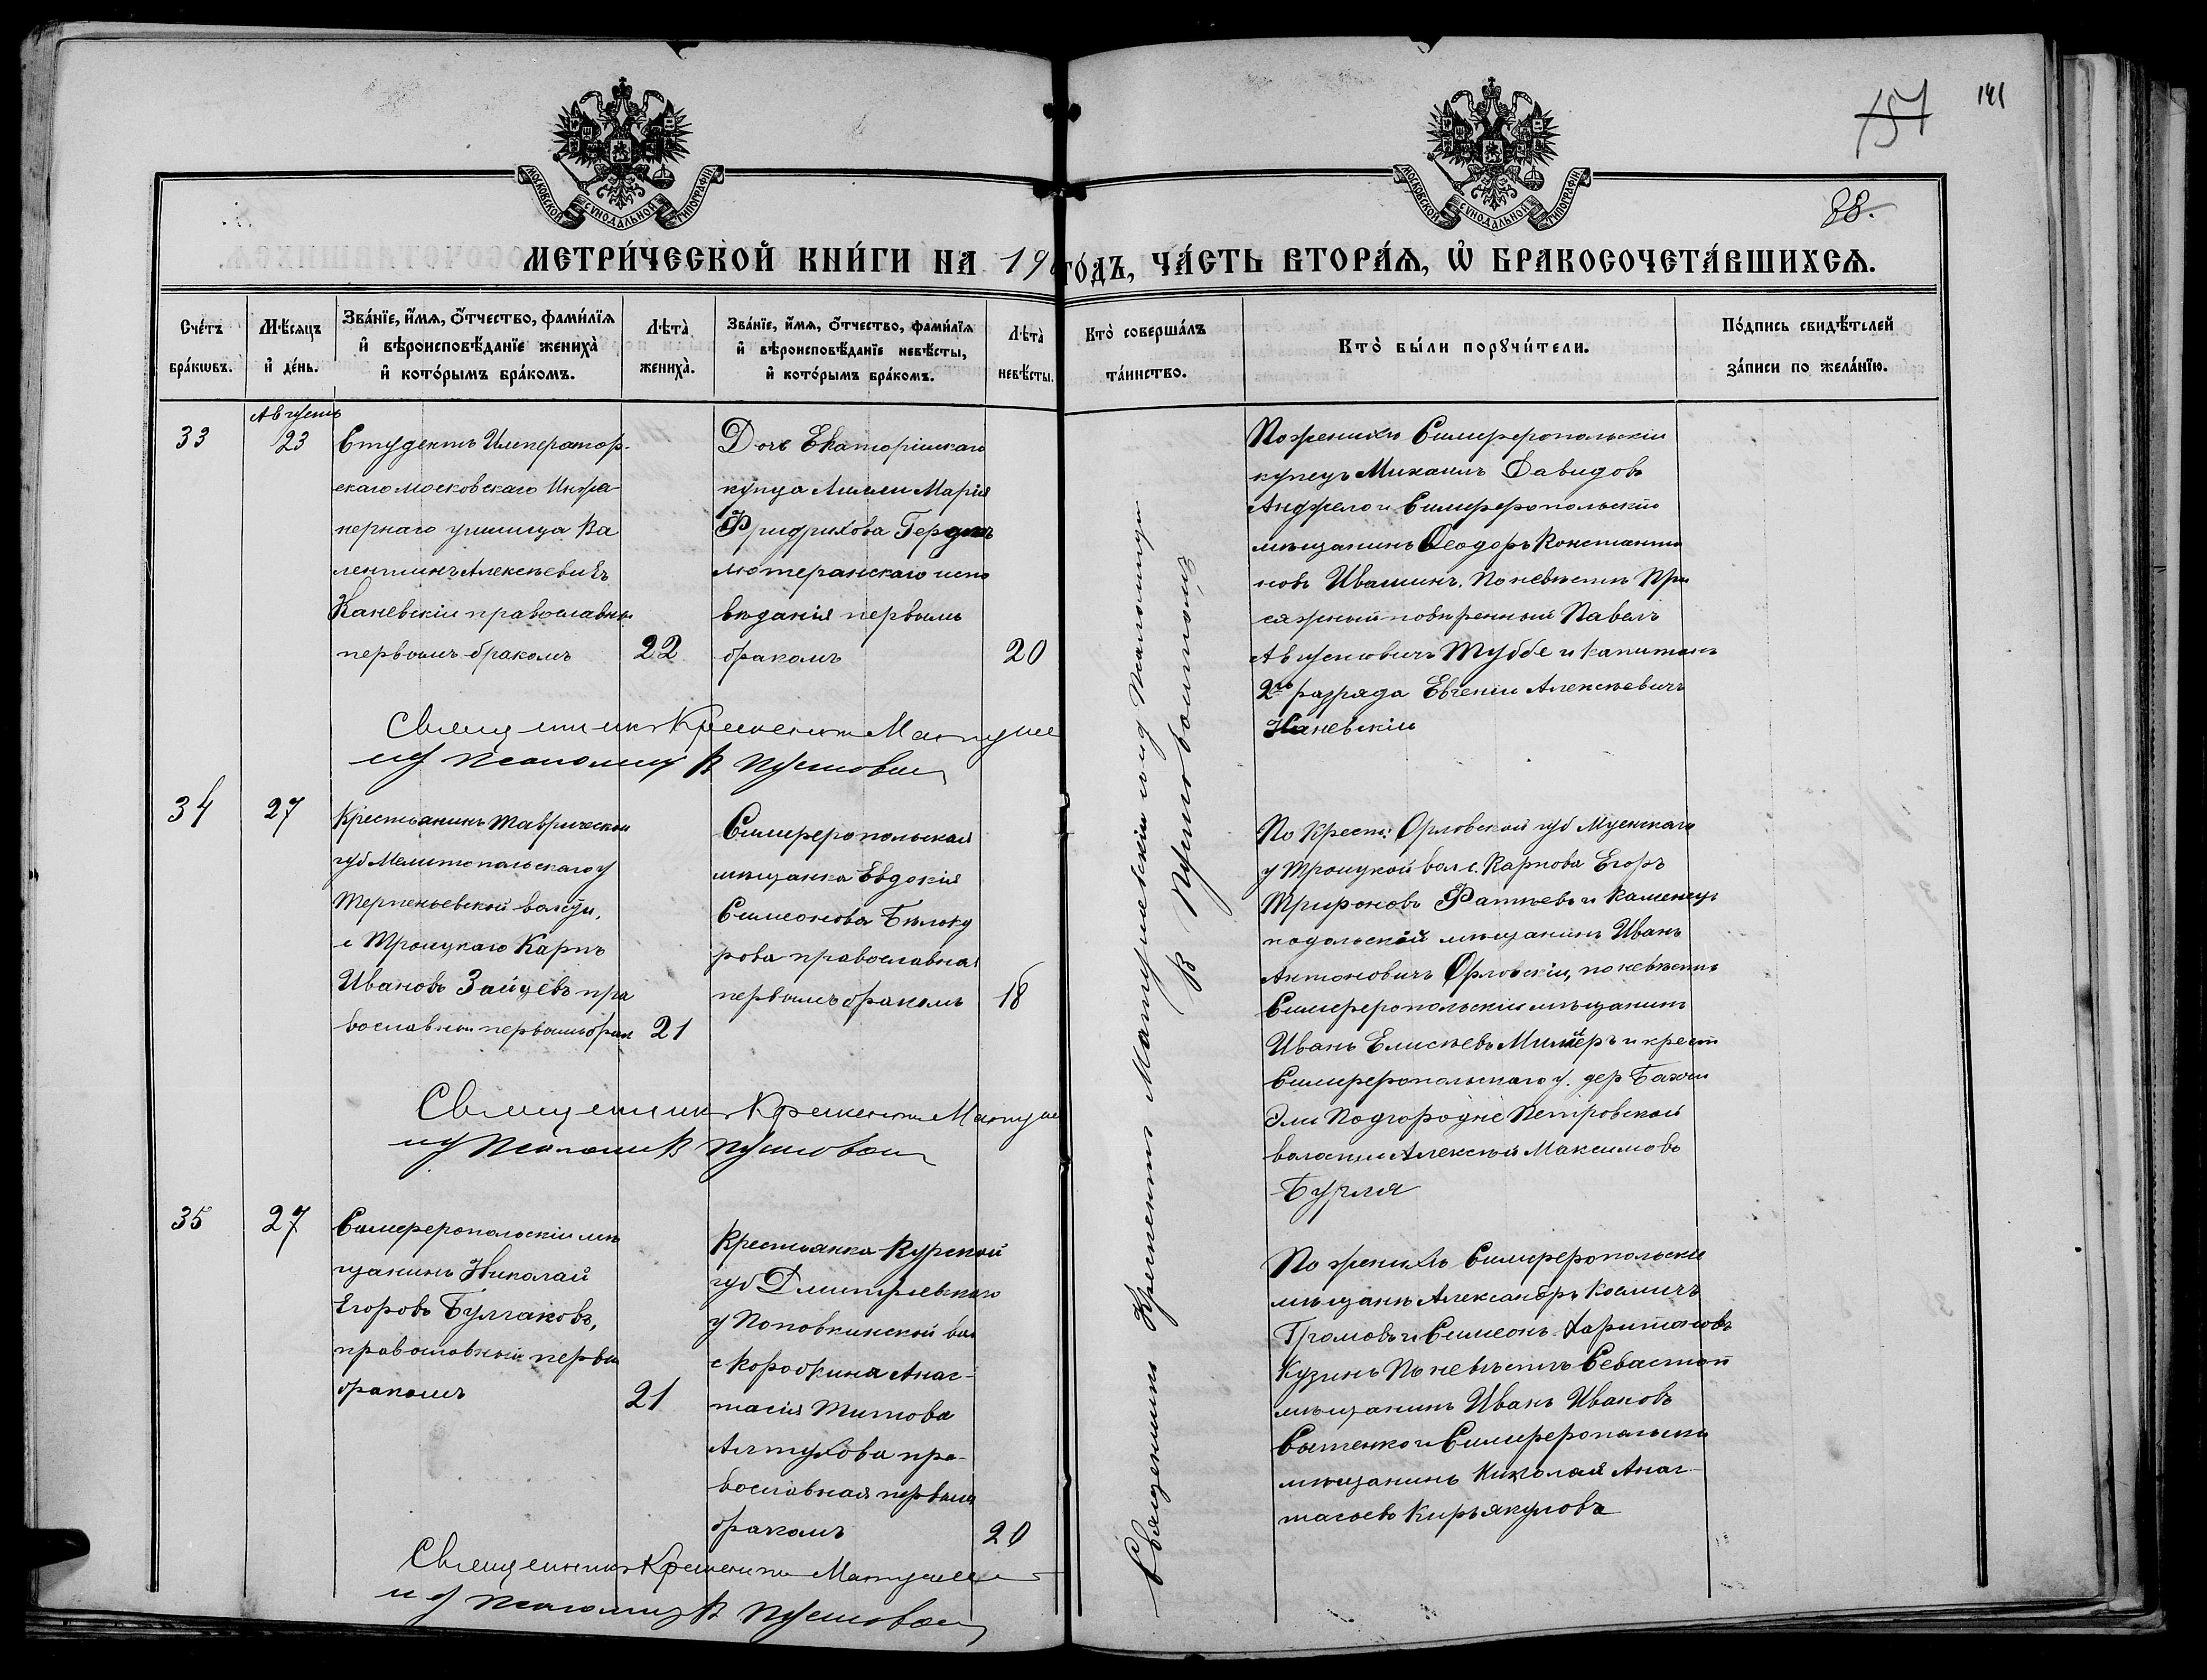 151
141
МОСКОВСКОЙ СѴНОДАЛЬНОЙ ТИПОГРАФІИ
МОСКОВСКОЙ СѴНОДАЛЬНОЙ ТИПОГРАФІИ
88.
МЕТРИ́ЧЕСКОЙ КНИ́ГИ НА 190 ГО́ДЪ, ЧА́СТЬ ВТОРА́Я, Ѡ БРАКОСОЧЕТА́ВШИХСЯ.
Сче́тъ
бра́кωвъ.
Мѣ́сяцъ
и҆ де́нь.
Зва́нїе, и҆́мя, ѻ҆́тчество, фами́лїя
и҆ вѣроисповѣ́данїе жениха̀
и҆ кото́рымъ бра́комъ.
Лѣ́та̀
жениха̀.
Зва́нїе, и҆́мя, ѻ҆́тчество, фами́лїя
и҆ вѣроисповѣ́данїе невѣ́сты,
и҆ кото́рымъ бра́комъ.
Лѣ́та̀
невѣ́сты.
Кто̀ соверша́лъ
та́инство.
Кто̀ бы́ли порꙋчи́тели.
По́дпись свидѣ́телей
за́писи по жела́нїю.
33
Августъ
23
Студентъ Император-
скаго Московскаго Инже-
нернаго училища Ва
лентинъ Алексѣевичъ
Каневскій православный
первымъ бракомъ
22
Дочь Евпаторійскаго
купца Марія
Фридрихова
лютеранскаго испо
вѣданія первымъ
бракомъ
20
По женихѣ Симферопольскій
купецъ Михаилъ Давидовъ
Анджело и Симферопольскій
мѣщанинъ Ѳеодоръ Константи
новъ Ивашинъ. По невѣстѣ При
сяжный повѣренный Павелъ
Августовичъ Туббе и капитанъ
2го разряда Евгеній Алексѣевичъ
Каневскій
Священникъ Климентъ Матуше
и д псаломщ. В
34
27
Крестьянинъ Таврической
губ Мелитопольскаго у
Терпеньевской волости,
с Троицкаго Карпъ
Ивановъ Зайцевъ пра
вославный первымъ брак
21
Симферопольская
мѣщанка Евдокія
Симеонова Бѣлоку
рова православная
первымъ бракомъ
18
По Крест: Орловской губ Мценскаго
у Троицкой вол с. Карпова Егоръ
Трифоновъ Фатѣевъ и Каменецъ
подольскій мѣщанинъ Иванъ
Антоновичъ Орловскій, по невѣстѣ
Симферопольскій мѣщанинъ
Иванъ Елисѣевъ Миллеръ и крест
Симферопольскаго у. дер
Эли Подгородне Петровской
волости Алексѣй Максимовъ
Бурля
Священникъ Климентъ Матуше
и д псаломщ В
35
27
Симферопольскій мѣ
щанинъ Николай
Егоровъ Булгаковъ,
православный первы
бракомъ
21
Крестьянка Курской
губ Дмитріевскаго
у Поповкинской вол
с Анас-
тасія Титова
Алтухова пра-
вославная первымъ
бракомъ
20
По женихѣ Симферопольскіе
мѣщане Александръ Космичъ
Громовъ и Симеонъ Харитоновъ
Кузинъ По невѣстѣ Севастоп
мѣщанинъ Иванъ Ивановъ
и Симферопольскій
мѣщанинъ Николай Анас-
тасьевъ Кирьякуловъ
Священникъ Климентъ Матушев
и д псаломщ В
Священникъ Климентъ Матушевскій и д Псаломщ
В